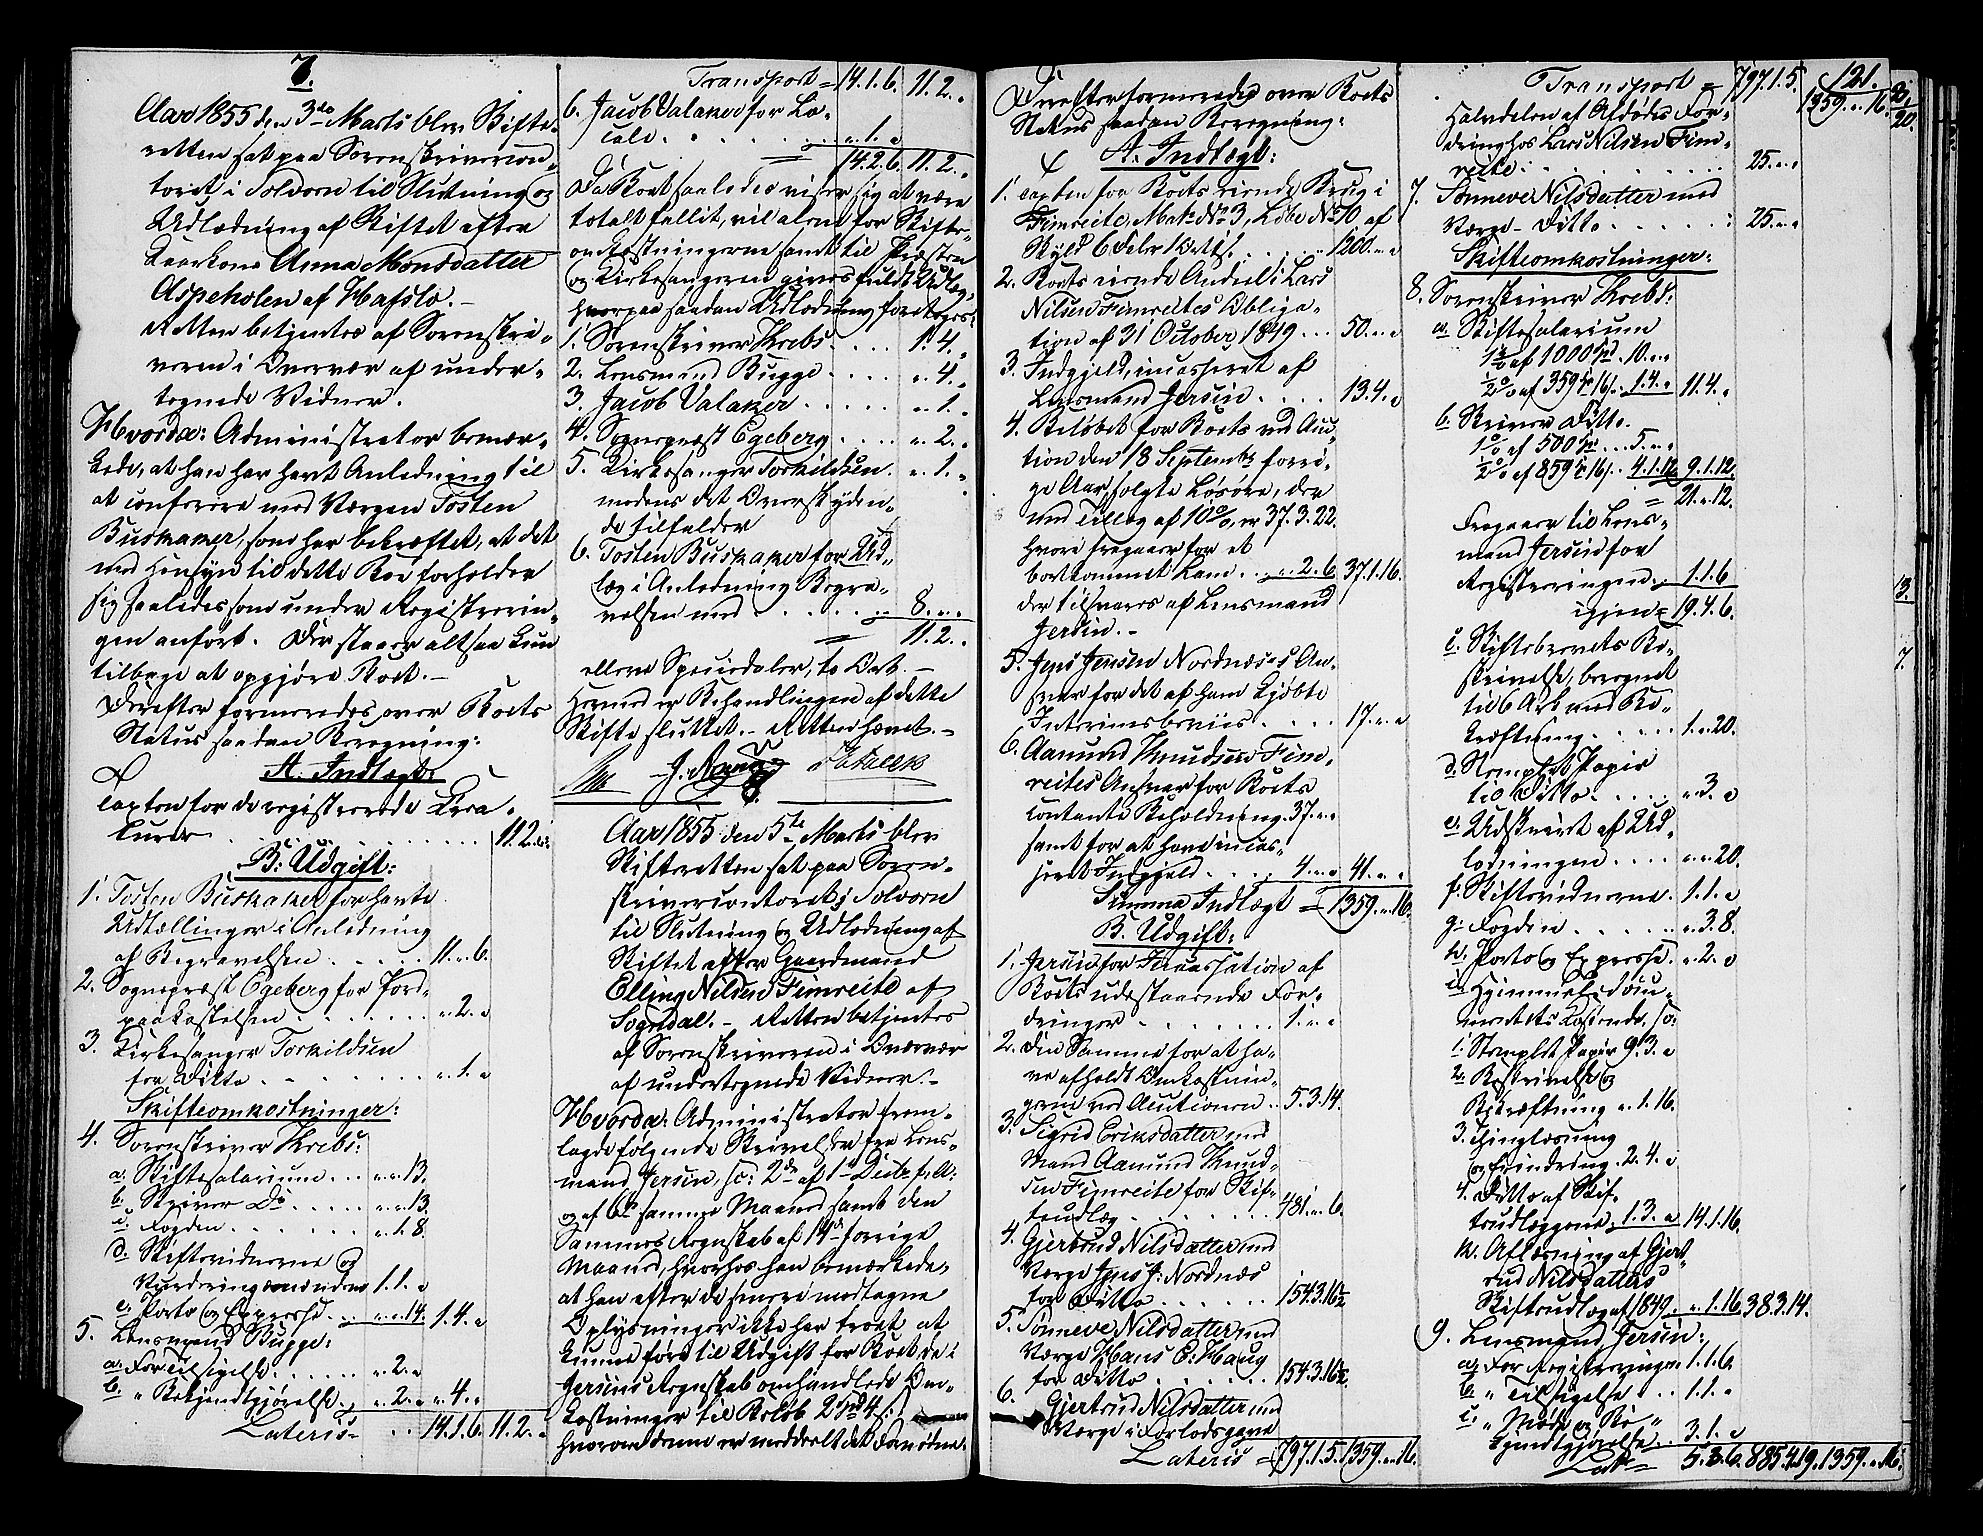 7.
Aar 1855 den 3die Marts blev Skifte-
retten sat paa Sorenskrivercon-
toret i Solvorn til Slutning og
Udlodning af Skiftet efter
Kaarkone Anna Monsdatter
Aspeholen af Hafslo. -
Retten betjentes af Sorenskri-
veren i Overvær af under-
tegnede Vidner.
Hvorda: Administrator bemær-
kede, at han har havt Anledning til
at conferere med Værgen Tosten
Buskaker, som har bekræftet, at det
med Hensyn til dette Boe forholder
sig saaledes som under Registrerin-
gen anført. Der staaer altsaa kun
tilbage at opgjøre Boet. -
Derefter formeredes over Boets
Status saadan Beregning:
A. Indtægt:
Taxten for de registrerede Krea-
turer . . . 11.2. "
B. Udgift:
1. Tosten Buskaker for havte
Udtællinger i Anledning
af Begravelsen . . . . . 11. " 6.
2. Sognepræst Egeberg for Jord-
paakastelsen . . . . . " 2. "
3. Kirkesanger Torkildsen
for Ditto . . . . . " 1. "
Skifteomkostninger:
4. Sorenskriver Krebs:
a. Skiftesalarium . . . " " 13.
b. Skriver Do . . . . . " " 13.
c. Fogden . . . . . " 1. 8.
d. Skiftevidnerne og
Vurderingsmændene 1. 1. "
e. Porto og Expresse . . " " 14. 1. 4. "
5. Lensmand Bugge:
a. For Tilsigelse . . . . . " 2. "
b. " Bekjendtgjørelse . " 2. " " 4. "
Lateris . . 14.1.6. 11.2. "
Transport = 14.1.6. 11.2. "
6. Jacob Valaker for Lo-
cale . . . . . " 1. "
= 14.2.6. 11.2. "
Da Boet saaledes viser sig at være
totalt fallit, vil alene for Skifte-
omkostningerne samt til Præsten
og Kirkesangeren gives fuldt Udlæg,
hvorpaa saadan Udlodning foretoges:
1. Sorenskriver Krebs . . . . 1. 4. "
2. Lensmand Bugge . . . . . " 4. "
3. Jacob Valaker . . . . . " 1. "
4. Sognepræst Egeberg . . . . " 2. "
5. Kirkesanger Torkildsen . " 1. "
medens det Overskyden-
de tilfalder
6. Tosten Buskaker for Ud-
læg i Anledning Begra-
velsen med . . . . . 8. " "
= 11.2. "
elleve Speciedaler, to Ort. -
Hermed er Behandlingen af dette
Skifte sluttet. - Retten hævet. -
8.
Aar 1855 den 5te Marts blev
Skifteretten sat paa Soren-
skrivercontoret i Solvorn
til Slutning og Udlodning af
Skiftet efter Gaardmand
Elling Nilsen Fimreite af
Sogndal. - Retten betjentes
af Sorenskriveren i Overvær
af undertegnede Vidner. -
Hvorda: Administrator frem-
lagde følgende Skrivelser fra Lens-
mand Jersin, sc: 2de af 1ste
og af 6te samme Maaned samt den
Sammes Regnskab af 14de forrige
Maaned, hvorhos han bemærkede,
at han efter de senere modtagne
Oplysninger ikke har troet at
kunne føre til Udgift for Boet de i
Jersins Regnskab omhandlede Om-
kostninger til Beløb 2 Spd 4 s.
hvorom denne er meddeelt det Fornødne.
Derefter formeredes over Boets
Status saadan Beregning:
A. Indtægt:
1. Taxten for Boets eiende Brug i
Fimreite, Mat. No 3, Løbe No 10 af
Skyld 6 Daler 1 Ort . . . . 1200. " "
2. Boets eiende Andeel i Lars
Nilsen Fimreites Obliga-
tion af 31 October 1849 . . . 50. " "
3. Indgjeld, incasseret af
Lensmand Jersin . . . . 13.4. "
4. Beløbet for Boets ved Auc-
tion den 18 Septembr forri-
ge Aar solgte Løsøre, der
med Tillæg af 10% er 37.3.22.
hvori fragaaer for et
bortkommet Lam . . " 2. 6. 37.1.16.
der tilsvares af Lensmand
Jersin. -
5. Jens Jensen Nordnæses An-
svar for det af ham kjøbte
Interimsbeviis . . . . 17. " "
6. Aamund Knudsen Fim-
reites Ansvar for Boets
contante Beholdning 37. " "
samt for at have incas-
seret Indgjeld . . . 4. " " 41. " "
Summa Indtægt = 1359. " 16.
B. Udgift:
1. Jersin for Incassation af
Boets udestaaende For-
dringer . . . . . . 1. " "
2. Den Samme for at ha-
ve afholdt Omkostnin-
gerne ved Auctionen . . 5.3.14.
3. Sigrid Eriksdatter med
Mand Aamund Knud-
sen Fimreite for Skif-
teudlæg . . . . . . 481. " 6.
4. Gjertrud Nilsdatter med
Værge Jens J: Nordnæs
for Ditto . . . . . . 154.3.16½.
5. Sønneve Nilsdatter med
Værge Hans E: Haug
for Ditto . . . . . . 154.3.16½.
6. Gjertrud Nilsdatter med
Værge i Forlodsgave
Lateris = 797.1.5. 1359. " 16.
121.
Transport = 797.1.5. 1359. " 16.
Halvdelen af Afdødes For-
dring hos Lars Nilsen Fim-
reite . . . . . . 25. " "
7. Sønneve Nilsdatter med
Værge - Ditto . . . . . 25. " "
Skifteomkostninger:
8. Sorenskriver Krebs:
a. Skiftesalarium
1% af 1000 Spd. 10. " "
½% af 359 Spd 16 s. 1.4. " 11.4. "
b. Skriver Ditto.
1% af 500 Spd . . 5. " "
½% af 859 Spd 16 s. . 4.1.12. 9.1.12.
= 21. " 12.
Fragaaer til Lens-
mand Jersin for
Registreringen . . 1.1.6.
igjen = 19.4.6.
c. Skiftebrevets Be-
skrivelse, beregnet
til 6 Ark med Be-
kræftning . . . . . 1. " 20.
d. Stemplet Papir
til Ditto . . . . . " 3. "
e. Udskrivt af Ud-
lodningen . . . . " " 20.
f. Skiftevidnerne . 1.1. "
g. Fogden . . . . . " 3. 8.
h. Porto og Expresse . " 2. "
i. Hjemmelsdocu-
mentets Kostende, sc:
1. Stemplet Papir 9.3. "
2. Beskrivelse og
Bekræftning " 1.16.
3. Thinglæsning
og Erindring . 2.4. "
4. Ditto af Skif-
teudlæggene . 1.3. " 14.1.16.
k. Aflæsning af Gjert-
rud Nilsdatters
Skifteudlæg af 1849 . " 1.16. 38.3.14.
9. Lensmand Jersin:
a. For Registreringen 1.1.6.
b. " Tilsigelse . . 1.1. "
c. " Møde og Be-
kjendtgjørelse . . 3.1. "
Lats = 5.3.6. 885.4.19. 1359. " 16.